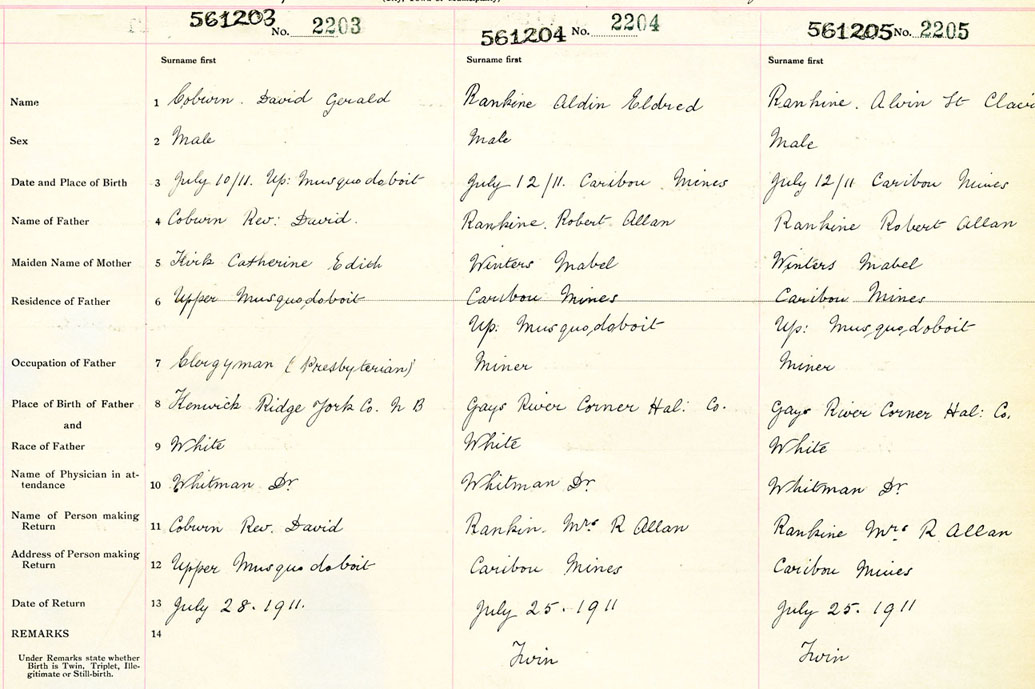 561203 No. 2203 561204 No. 2204 561205 No. 2205
Surname first Surname first Surname first
Name 1 Coburn. David Gerald Rankine Aldin Eldred Rankine. Alvin St
Sex 2 Male Male Male
Date and Place of Birth 3 July 10/11. Up: Musquodoboit July 12/11. Caribou Mines July 12/11 Caribou Mines
Name of Father 4 Coburn Rev: David. Rankine. Robert Allan Rankine Robert Allan
Maiden Name of Mother 5 Kirk Catherine Edith Winters Mabel Winters Mabel
Residence of Father 6 Upper Musquodoboit Caribou Mines Caribou Mines
Up: Musquodoboit Up: Musquodoboit
Occupation of Father 7 Clergyman (Presbyterian) Miner Miner
Place of Birth of Father 8 Ridge York Co. N B Gays River Corner Hal: Co. Gays River Corner Hal: Co.
and
Race of Father 9 White White White
Name of Physician in at-
tendance 10 Whitman Dr Whitman Dr. Whitman Dr.
Name of Person making
Return 11 Coburn Rev. David Rankin. Mrs R Allan Rankine Mrs R Allan
Address of Person making
Return 12 Upper Musquodoboit Caribou Mines Caribou Mines
Date of Return 13 July 28. 1911. July 25. 1911 July 25. 1911
REMARKS 14
Under Remarks state whether
Birth is Twin, Triplet, Ille-
gitimate or Still-birth.
Twin Twin